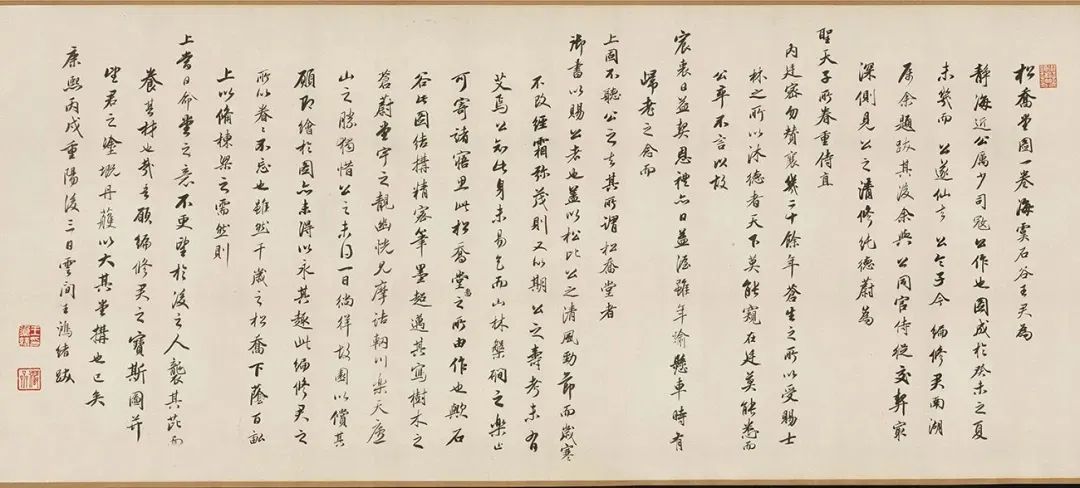 松喬堂圖一卷海虞石谷王君為
靜海近公厲少司寇公作也圖成於癸未之夏
未幾而公遂仙去公令子今編修君南湖
屬余題跋其後余與公同官侍從交契最
深側見公之清修純德蔚為
聖天子所眷重侍直
內廷密勿贊襄幾二十餘年蒼生之所以受賜士
林之所以沐德者天下莫能窺石廷莫能卷而
公卒不言以故
宸衷日益契恩禮亦日益渥雖年逾懸車時有
歸老之念而
上固不聽公之去其所謂松喬堂者
御書以賜公者也蓋以松比公之清風勁節而歲寒
不改經霜彌茂則又以期公之壽考未有
艾焉公知此身未易乞而山林槃磵之樂止
可寄諸寤思此松喬堂圖之所由作也歟石
谷此圖結構精密筆墨超邁其寫樹木之
蒼蔚堂宇之靚幽恍見摩詰輞川樂天廬
山之勝獨惜公之未得一日徜徉故園以償其
願即繪於圖亦未得以永其趣此編修君之
所以眷眷不忘也雖然千歲之松喬下蔭百畝
上以備棟梁之需然則
上當日命堂之意不更望於後之人襲其芘而
養其材也哉吾願編修君之寶斯圖并
望君之塗塈丹雘以大其堂構也已矣
康熙丙戌重陽後三日雲間王鴻緒跋